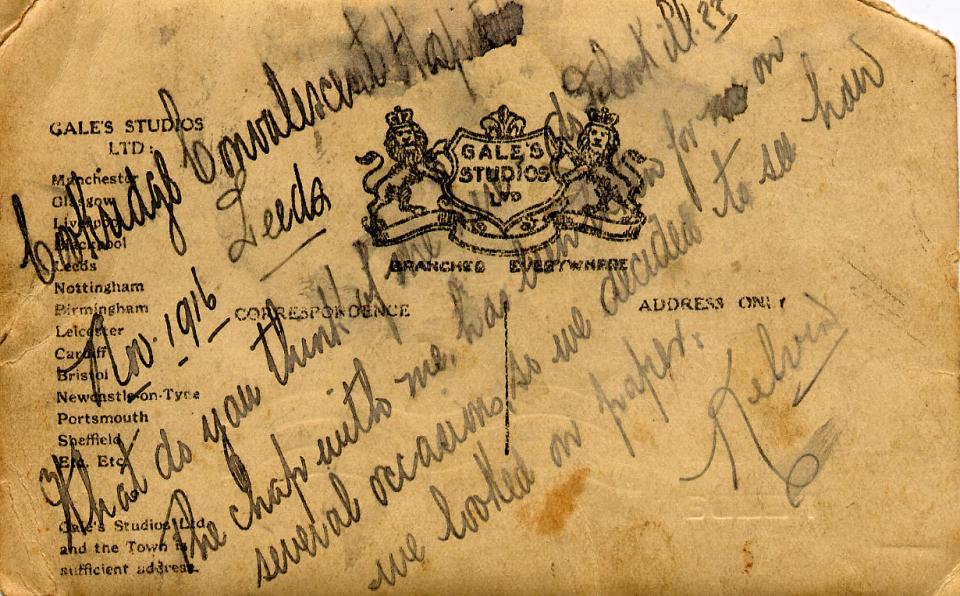 GALE'S STUDIOS
LTD:
Manchester
Glasgow
Liverpool
Blackpool
Leeds
Nottingham
Birmingham
Leicester
Cardiff
Bristol
Newcastle-on-Tyne
Portsmouth
Sheffield
Etc. Etc.
Gale's Studios Ltd
and the Town is
sufficient address.
GALE'S
STUDIOS
LTD
BRANCHES EVERYWHERE
CORRESPONDENCE
ADDRESS ONLY
Cookridge Convalescent Hospital
Leeds
Nov. 1916
What do you think of me do I look ill??
The chap with me, has been for me on
several occasions, so we decided to see how
we looked on paper.
Kelvin